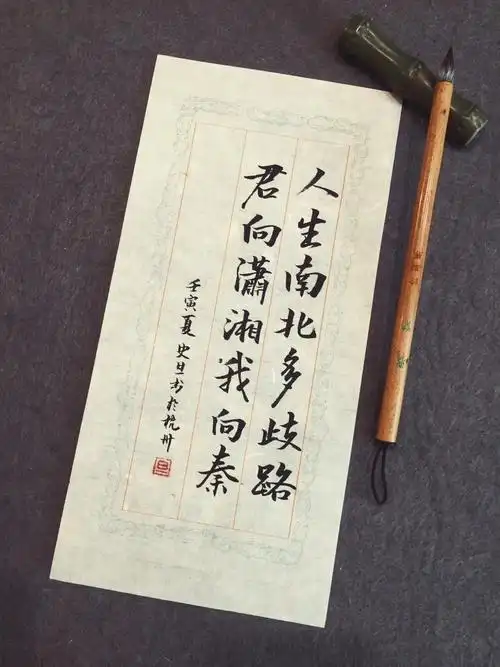 人生南北多歧路
君向瀟湘我向秦
壬寅夏 史旦书於杭州